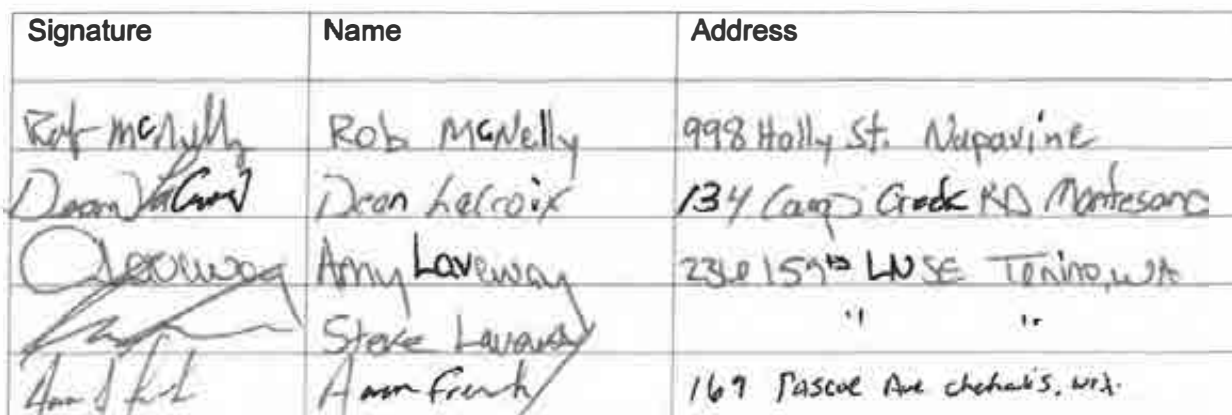 Signature Name Address
Rob McNelly Rob McNelly 998 Holly St. Napavine
Dean LaCroix Dean LaCroix 134 Camp Creek RD Montesano
Amy Laveway 159th LN SE Tenino, WA
Steve Laveway " "
French 169 Pascoe Ave chehalis, wa.